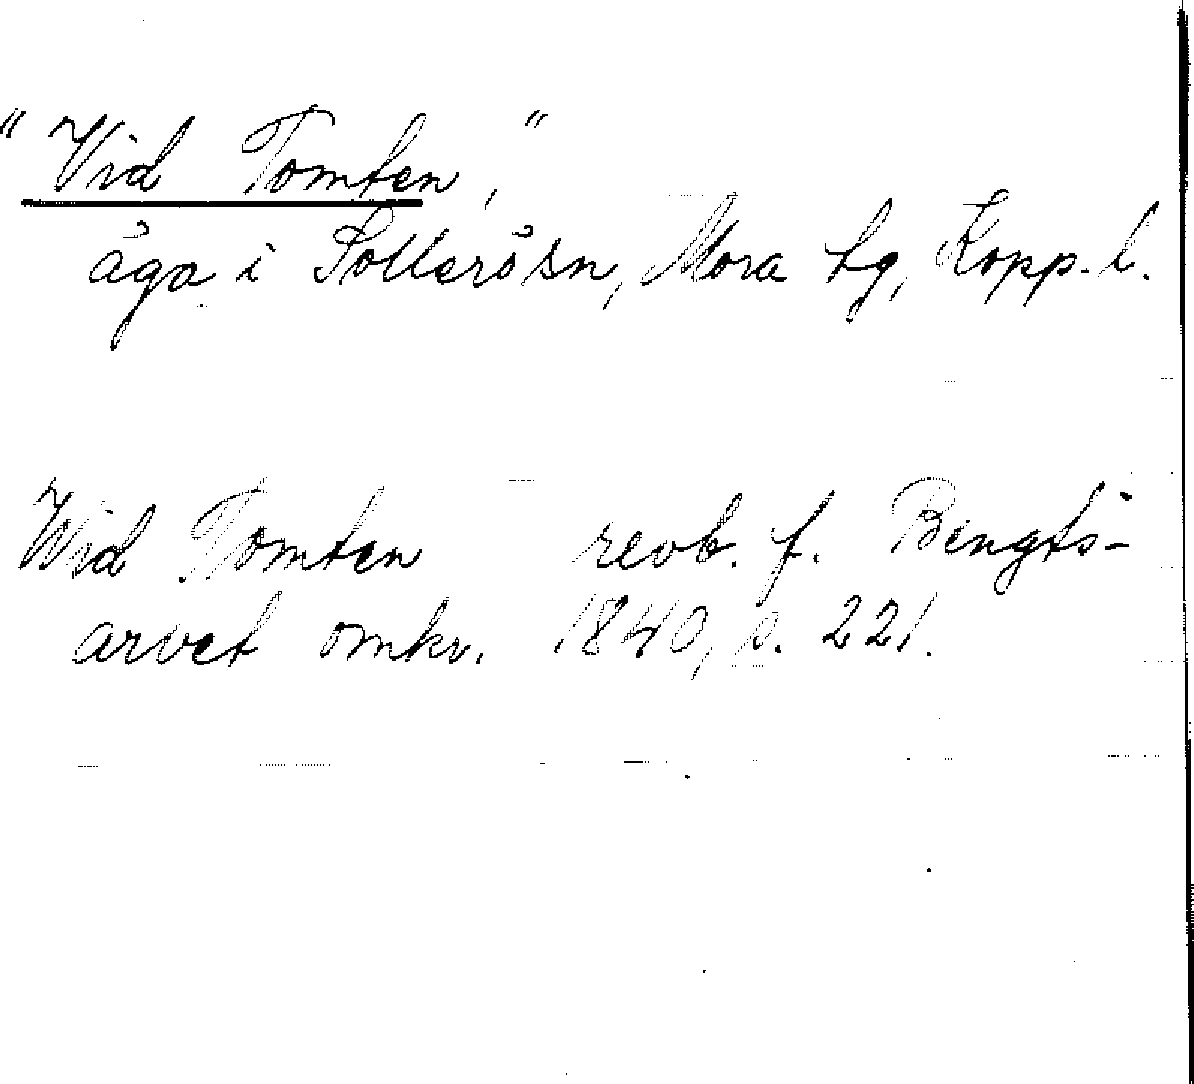 "Vid Tomten,"
äga i Sollerö sn, Mora tg, Kopp. l.
Wid Tomten revb. f. Bengts-
arvet omkr. 1840, s. 221.